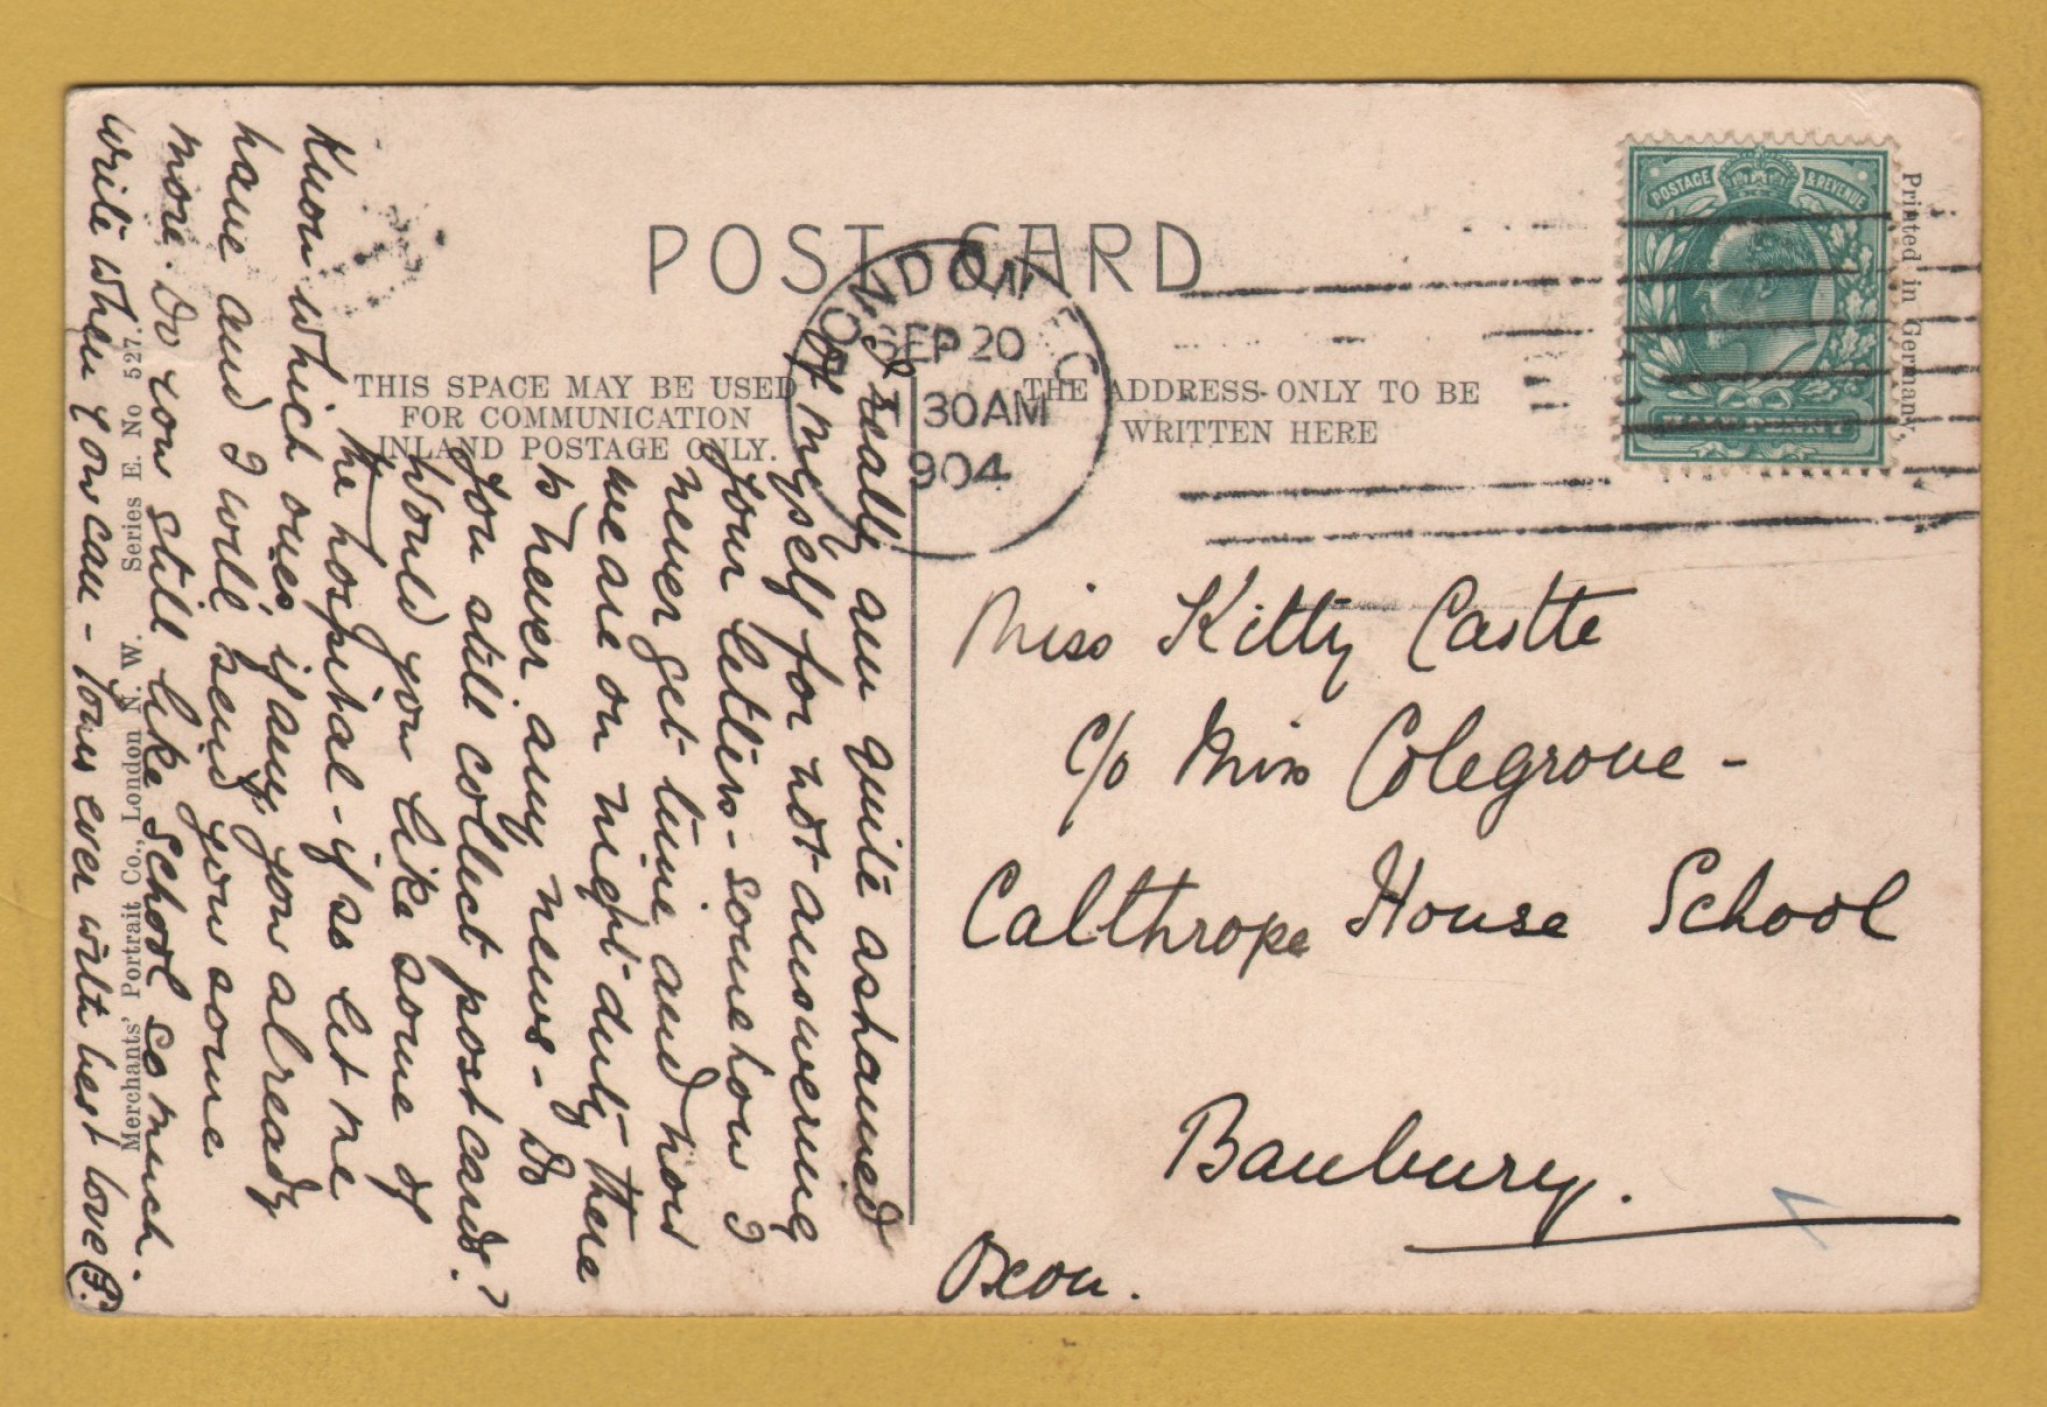 POST CARD
THIS SPACE MAY BE USED
FOR COMMUNICATION
INLAND POSTAGE ONLY.
THE ADDRESS ONLY TO BE
WRITTEN HERE
LONDON
SEP 20
30AM
904
POSTAGE & REVENUE
Printed in Germany.
Miss Kitty Castle
c/o Miss Colegrove -
Calthrope House School
Banbury.
Oxon.
I really am quite ashamed
of myself for not answering
your letters - somehow I
never get time and now
we are on night duty there
is never any news - Do
you still collect post cards?
Would you like some of
the hospital - if so let me
know which ones if any you already
have and I will send you some
more. Do you still like School so much.
write when you can - Yours ever with best love P.
Merchants' Portrait Co., London N. W. Series E. No 527.